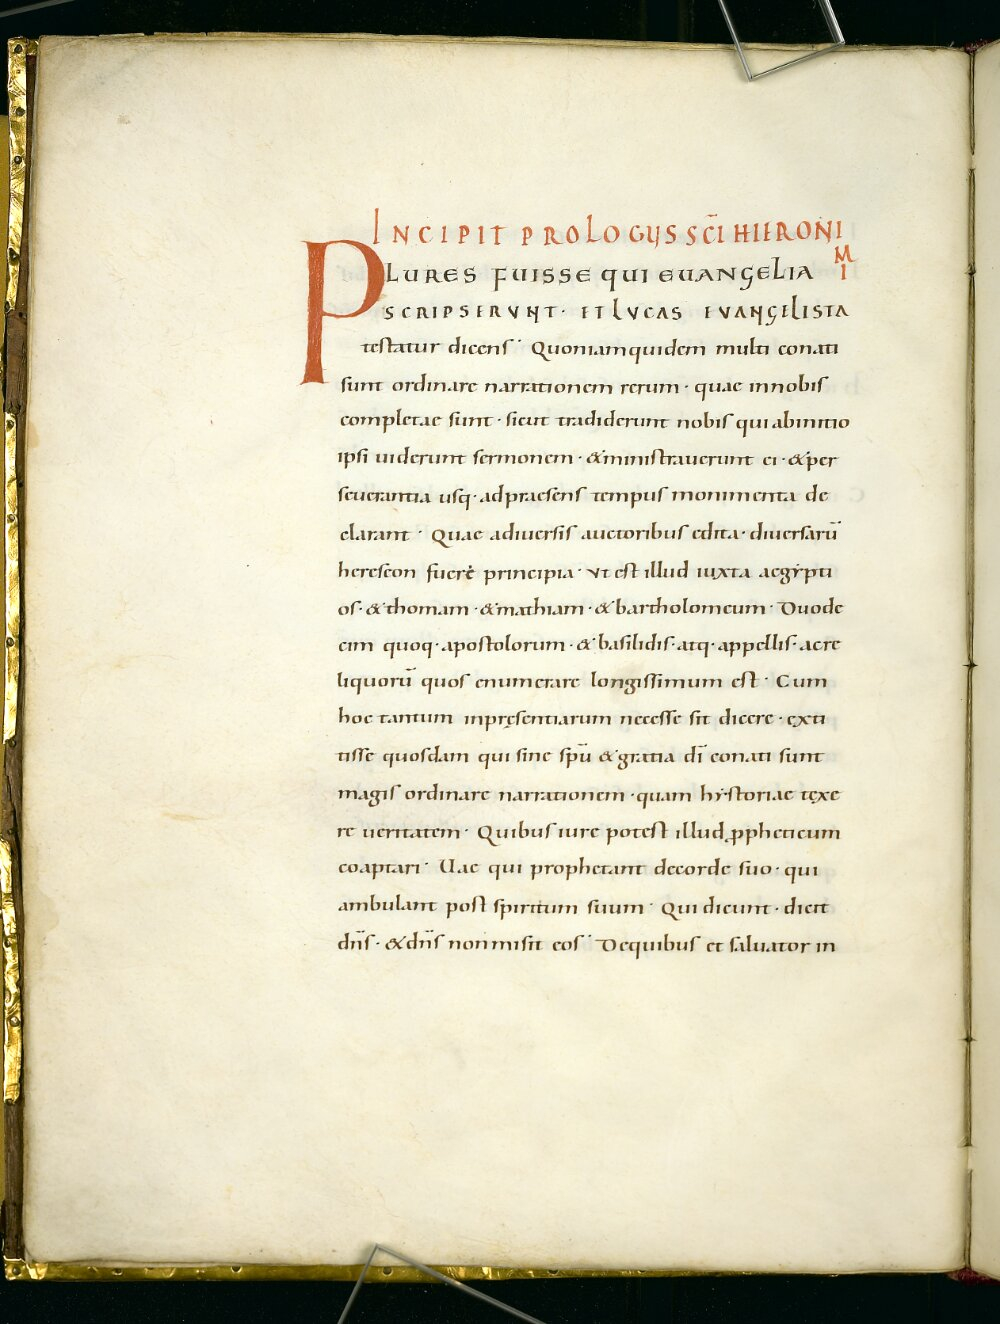 INCIPIT PROLOGUS SCĪ HIERONI
MI
PLURES FUISSE QUI EUANGELIA
SCRIPSERUNT· ET LUCAS EUANGELISTA
testatur dicens· Quoniamquidem multi conati
sunt ordinare narrationem rerum· quae innobis
completae sunt· sicut tradiderunt nobis qui abinitio
ipsi uiderunt sermonem· &ministrauerunt ei· &per
seuerantia usq· adpraesens tempus monimenta de
clarant· Quae adiuersis auctoribus edita· diuersarū
hereseon fuere principia· ut est illud iuxta aegypti
os· &thomam· &mathiam· &bartholomeum· Duode
cim quoq· apostolorum· & basilidis· atq· appellis· acre
liquorū quos enumerare longissimum est· Cum
hoc tantum inpręsentiarum necesse sit dicere· exti
tisse quosdam qui sine sp̄u &gratia dī conati sunt
magis ordinare narrationem· quam hystoriae texe
re ueritatem· Quibus iure potest illud ꝓpheticum
coaptari· Uae qui prophetant decorde suo· qui
ambulant post spiritum suum· Qui dicunt· dicit
dn̄s· &dn̄s nonmisit eos· Dequibus et saluator in